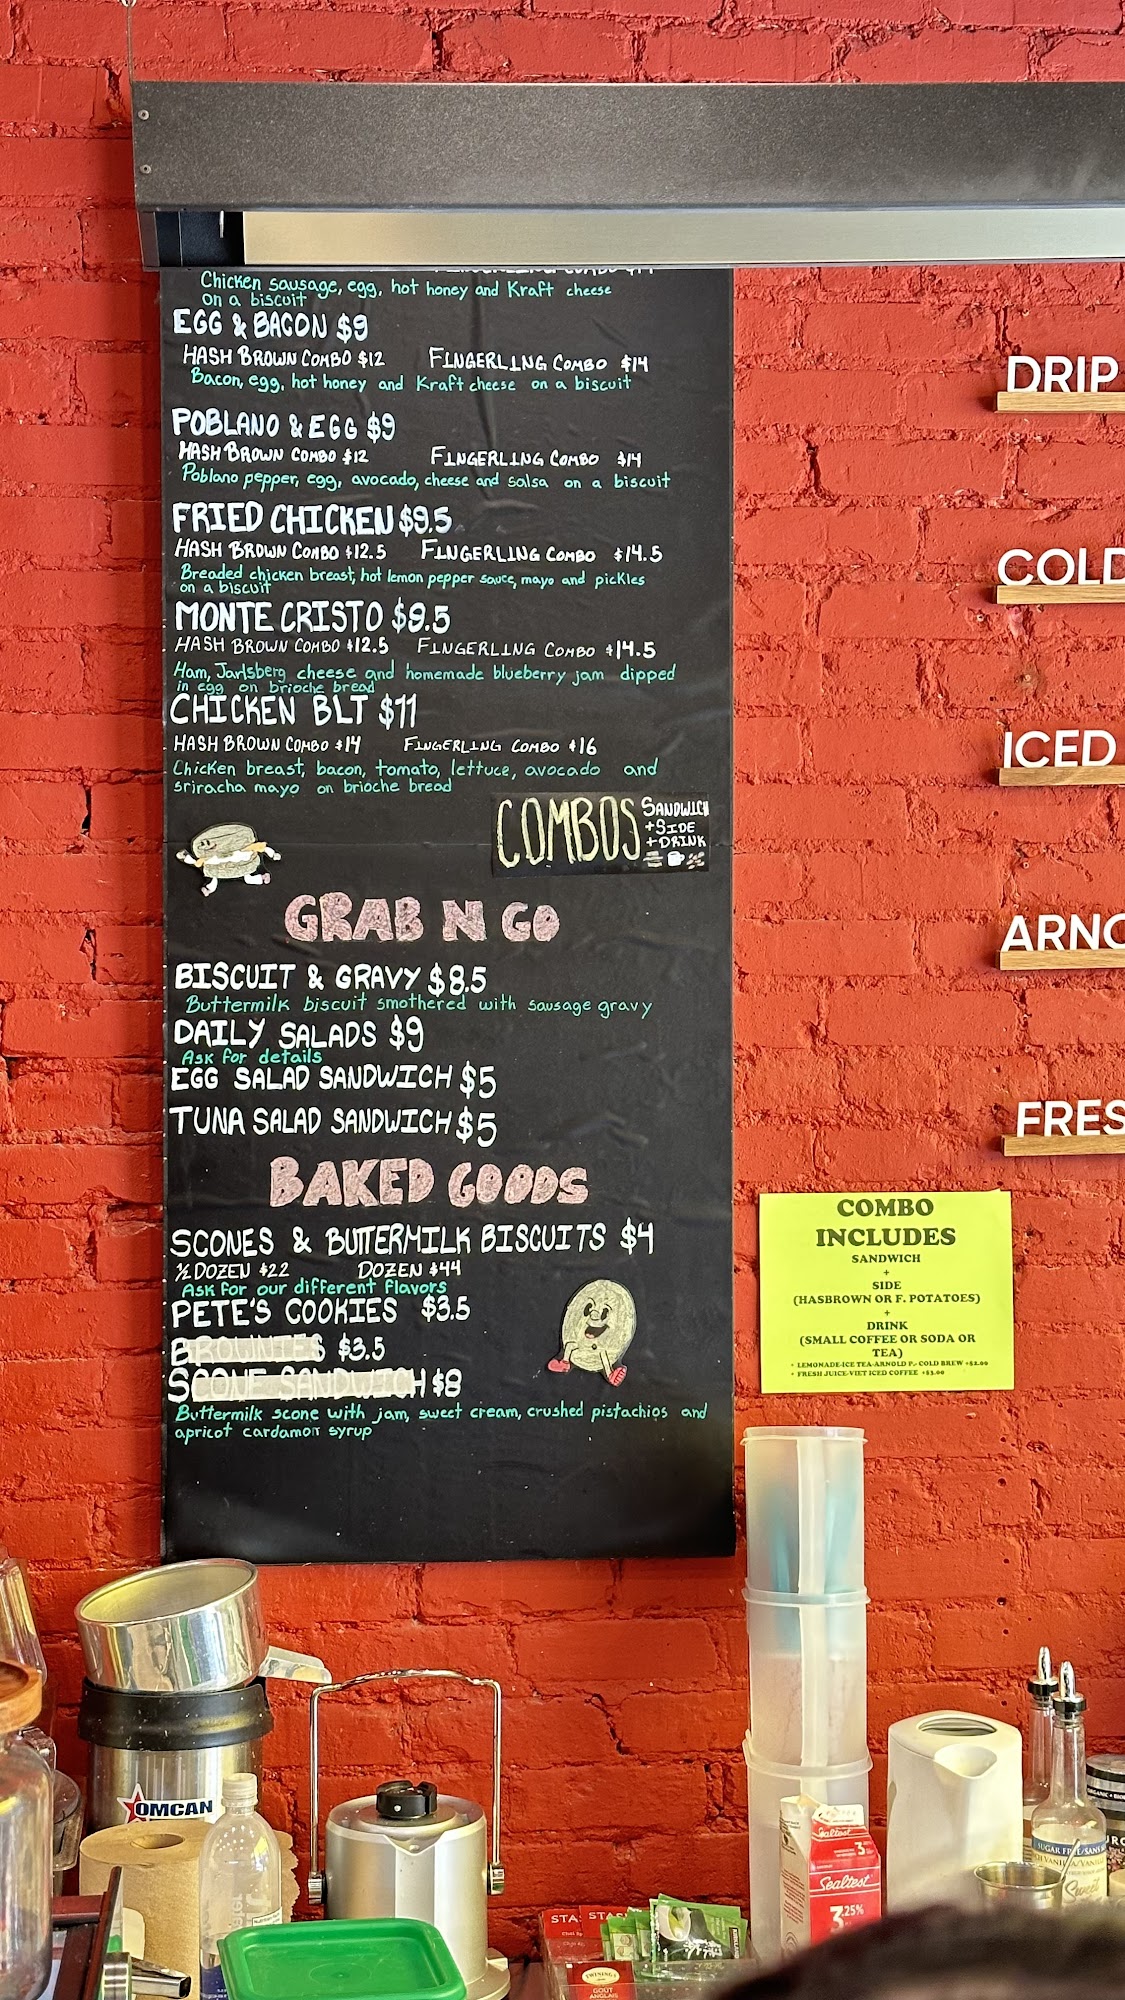 Chicken sausage, egg, hot honey and Kraft cheese
on a biscuit
EGG & BACON $9
HASH BROWN COMBO $12 FINGERLING COMBO $14
Bacon, egg, hot honey and Kraft cheese on a biscuit
POBLANO & EGG $9
HASH BROWN COMBO $12 FINGERLING COMBO $14
Poblano pepper, egg, avocado, cheese and salsa on a biscuit
FRIED CHICKEN $9.5
HASH BROWN COMBO $12.5 FINGERLING COMBO $14.5
Breaded chicken breast, hot lemon pepper sauce, mayo and pickles
on a biscuit
MONTE CRISTO $9.5
HASH BROWN COMBO $12.5 FINGERLING COMBO $14.5
Ham, Jarlsberg cheese and homemade blueberry jam dipped
in egg on brioche bread
CHICKEN BLT $11
HASH BROWN COMBO $14 FINGERLING COMBO $16
Chicken breast, bacon, tomato, lettuce, avocado and
sriracha mayo on brioche bread
COMBOS SANDWICH
+SIDE
+DRINK
GRAB N GO
BISCUIT & GRAVY $8.5
Buttermilk biscuit smothered with sausage gravy
DAILY SALADS $9
Ask for details
EGG SALAD SANDWICH $5
TUNA SALAD SANDWICH $5
BAKED GOODS
SCONES & BUTTERMILK BISCUITS $4
½ DOZEN $22 DOZEN $44
Ask for our different flavors
PETE'S COOKIES $3.5
BROWNIES $3.5
SCONE SANDWICH $8
Buttermilk scone with jam, sweet cream, crushed pistachios and
apricot cardamom syrup
DRIP
COLD
ICED
ARNO
FRES
COMBO
INCLUDES
SANDWICH
+
SIDE
(HASBROWN OR F. POTATOES)
+
DRINK
(SMALL COFFEE OR SODA OR
TEA)
* LEMONADE-ICE TEA-ARNOLD P.- COLD BREW +$2.00
* FRESH JUICE-VIET ICED COFFEE +$3.00
OMCAN
Sealtest
3.25%
STA
STAS
TWININGS
GOÛT
ANGLAIS
SUGAR FREE/SANS
Sweet